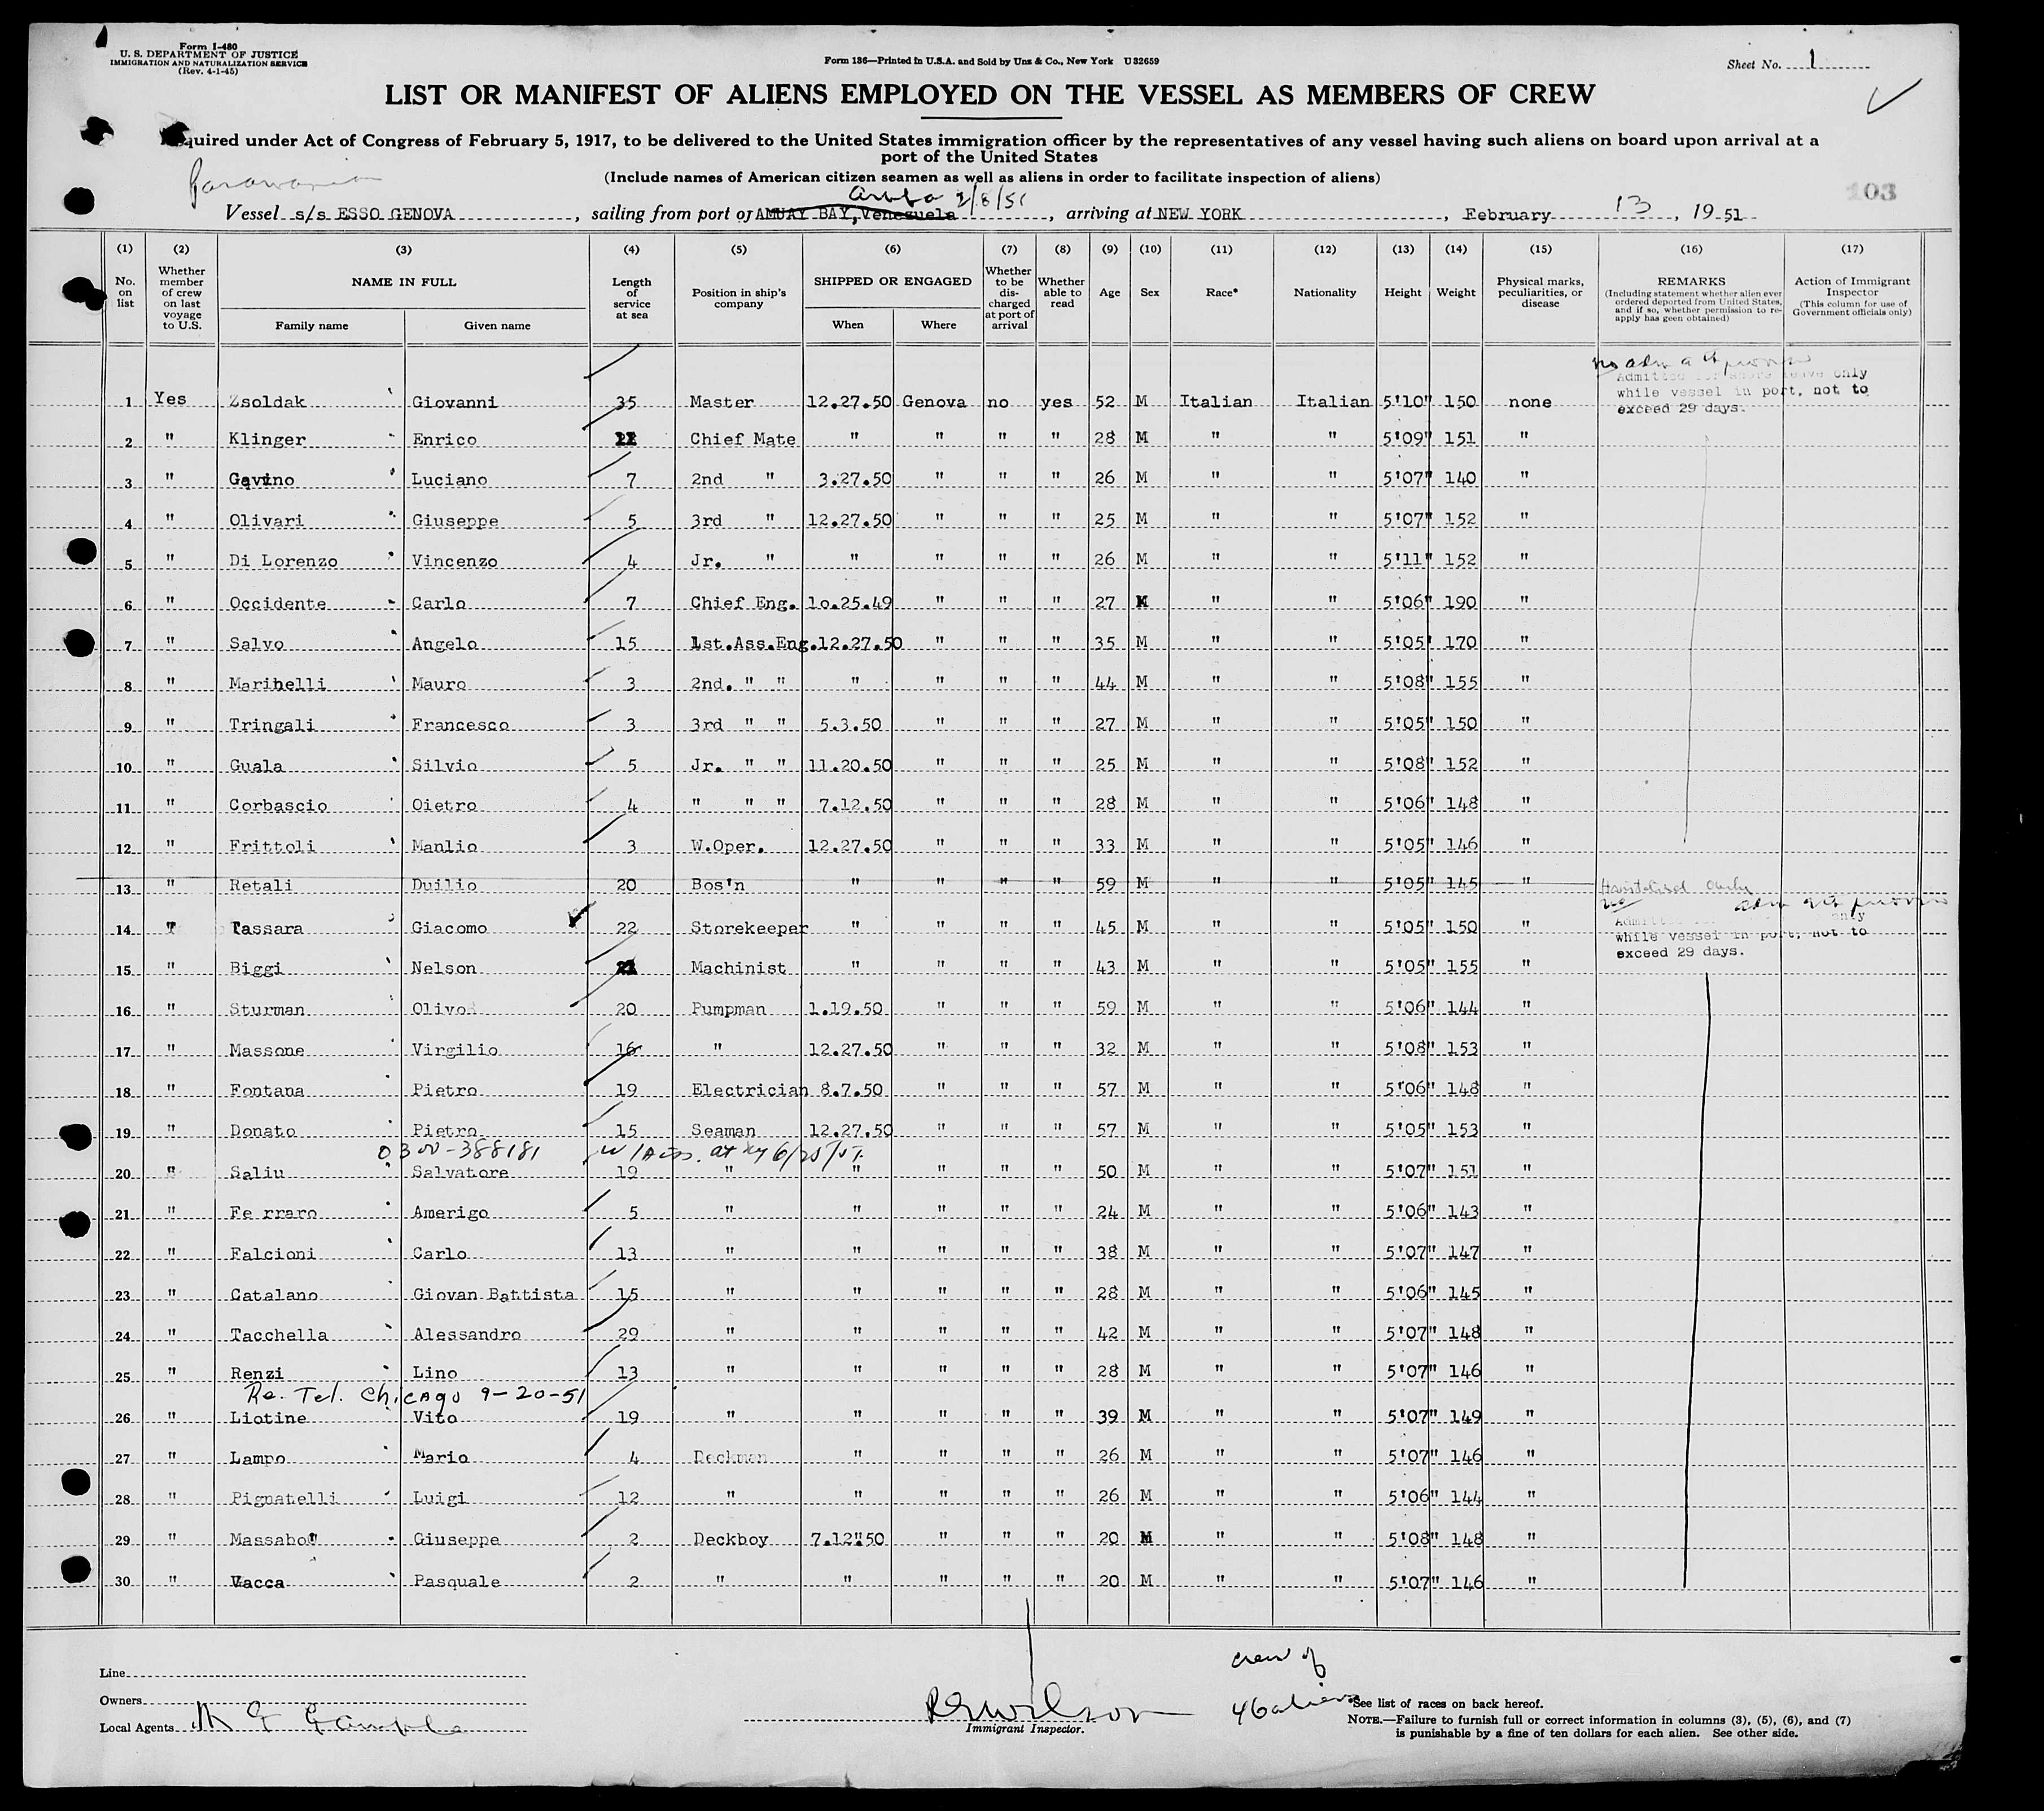 Form I-480
U. S. DEPARTMENT OF JUSTICE
IMMIGRATION AND NATURALIZATION SERVICE
(Rev. 4-1-45)
Form 136—Printed in U.S.A. and Sold by Unz & Co., New York U 32659
Sheet No. 1
LIST OR MANIFEST OF ALIENS EMPLOYED ON THE VESSEL AS MEMBERS OF CREW
quired under Act of Congress of February 5, 1917, to be delivered to the United States immigration officer by the representatives of any vessel having such aliens on board upon arrival at a
port of the United States
(Include names of American citizen seamen as well as aliens in order to facilitate inspection of aliens)
Aruba 2/8/51
103
Vessel s/s ESSO GENOVA, sailing from port of AMUAY BAY, Venezuela, arriving at NEW YORK, February 13, 1951
(1) (2) (3) (4) (5) (6) (7) (8) (9) (10) (11) (12) (13) (14) (15) (16) (17)
No. on list
Whether member of crew on last voyage to U.S.
NAME IN FULL
Family name
Given name
Length of service at sea
Position in ship's company
SHIPPED OR ENGAGED
When
Where
Whether to be dis-charged at port of arrival
Whether able to read
Age
Sex
Race*
Nationality
Height
Weight
Physical marks, peculiarities, or disease
REMARKS
(Including statement whether alien ever ordered deported from United States, and if so, whether permission to re-apply has geen obtained)
Action of Immigrant Inspector
(This column for use of Government officials only)
no adm
Admitted leave only
while vessel in port, not to
exceed 29 days.
1 Yes Zsoldak Giovanni 35 Master 12.27.50 Genova no yes 52 M Italian Italian 5'10" 150 none
2 " Klinger Enrico Chief Mate " " " " 28 M " " 5'09" 151 "
3 " Gavino Luciano 7 2nd " 3.27.50 " " " 26 M " " 5'07" 140 "
4 " Olivari Giuseppe 5 3rd " 12.27.50 " " " 25 M " " 5'07" 152 "
5 " Di Lorenzo Vincenzo 4 Jr. " " " " " 26 M " " 5'11" 152 "
6 " Occidente Carlo 7 Chief Eng. 10.25.49 " " " 27 M " " 5'06" 190 "
7 " Salvo Angelo 15 1st.Ass.Eng. 12.27.50 " " " 35 M " " 5'05" 170 "
8 " Marinelli Mauro 3 2nd. " " " " " " 44 M " " 5'08" 155 "
9 " Tringali Francesco 3 3rd " " 5.3.50 " " " 27 M " " 5'05" 150 "
10 " Guala Silvio 5 Jr. " " 11.20.50 " " " 25 M " " 5'08" 152 "
11 " Corbascio Oietro 4 " " " 7.12.50 " " " 28 M " " 5'06" 148 "
12 " Frittoli Manlio 3 W.Oper. 12.27.50 " " " 33 M " " 5'05" 146 "
13 " Retali Duilio 20 Bos'n " " " " 59 M " " 5'05" 145 "
no
only
while vessel in port, not to
exceed 29 days.
14 " Tassara Giacomo 22 Storekeeper " " " " 45 M " " 5'05" 150 "
15 " Biggi Nelson Machinist " " " " 43 M " " 5'05" 155 "
16 " Sturman Olivo 20 Pumpman 1.19.50 " " " 59 M " " 5'06" 144 "
17 " Massone Virgilio 16 " 12.27.50 " " " 32 M " " 5'08" 153 "
18 " Fontana Pietro 19 Electrician 8.7.50 " " " 57 M " " 5'06" 148 "
19 " Donato Pietro 15 Seaman 12.27.50 " " " 57 M " " 5'05" 153 "
0300-388181
20 " Saliu Salvatore 19 " " " " " 50 M " " 5'07" 151 "
21 " Fe rraro Amerigo 5 " " " " " 24 M " " 5'06" 143 "
22 " Falcioni Carlo 13 " " " " " 38 M " " 5'07" 147 "
23 " Catalano Giovan Battista 15 " " " " " 28 M " " 5'06" 145 "
24 " Tacchella Alessandro 29 " " " " " 42 M " " 5'07" 148 "
25 " Renzi Lino 13 " " " " " 28 M " " 5'07" 146 "
Re. Tel. Chicago 9-20-51
26 " Liotine Vito 19 " " " " " 39 M " " 5'07" 149 "
27 " Lampo Mario 4 Deckman " " " " 26 M " " 5'07" 146 "
28 " Pignatelli Luigi 12 " " " " " 26 M " " 5'06" 144 "
29 " Massabo" Giuseppe 2 Deckboy 7.12"50 " " " 20 M " " 5'08" 148 "
30 " Vacca Pasquale 2 " " " " " 20 M " " 5'07" 146 "
Line
Owners
Local Agents
crew of
46 aliens
Immigrant Inspector.
*See list of races on back hereof.
NOTE.—Failure to furnish full or correct information in columns (3), (5), (6), and (7)
is punishable by a fine of ten dollars for each alien. See other side.